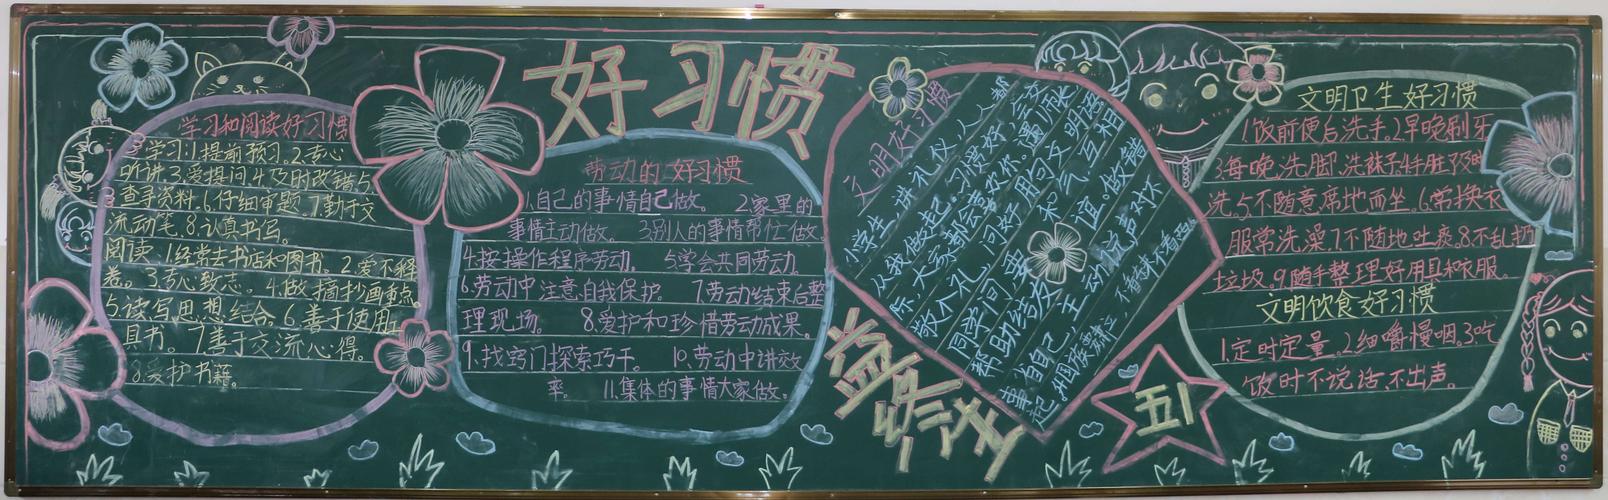 好习惯
益终生
学习和阅读好习惯
学习:1.提前预习。2.专心
听讲3.爱提问4.及时改错5.
查寻资料.6.仔细审题.7.勤于交
流动笔.8.认真书写。
阅读:1.经常去书店和图书。2.爱不释
卷。3.专心致志。4.做摘抄画重点。
5.读写思想结合。6.善于使用工
具书。7善于交流心得。
8.爱护书籍。
劳动的好习惯
1.自己的事情自己做。 2.家里的
事情主动做。 3.别人的事情帮忙做。
4.按操作程序劳动。 5.学会共同劳动。
6.劳动中注意自我保护。 7.劳动结束后整
理现场。 8.爱护和珍惜劳动成果。
9.找窍门探索巧干。 10.劳动中讲效
率。 11.集体的事情大家做。
文明好习惯
小学生,讲礼仪,人人都
从我做起。习惯好,
际,大家都会喜欢你。遇师长
敬个礼,问好
同学间,要和气,互相
帮助结友谊。做错
事,
起。升国旗,肃立,
五1
文明卫生好习惯
1.饭前便后洗手.2.早晚刷牙
3.每晚洗脚、洗袜子.4.手脏及时
洗.5.不随意席地而坐.6.常换衣
服常洗澡.7.不随地吐痰.8.不乱扔
垃圾.9.随手整理好用具和衣服.
文明饮食好习惯
1.定时定量.2.细嚼慢咽.3.吃
饭时不说话,不出声。